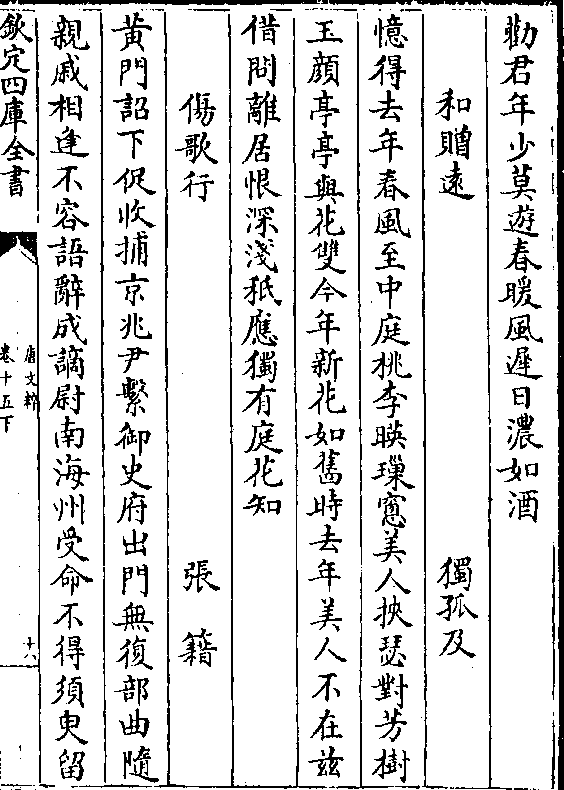 勸君年少莫遊春暖風遲日濃如酒
和贈遠 獨孤及
憶得去年春風至中庭桃李暎璅窻美人挾瑟對芳樹
玉顔亭亭與花雙今年新花如舊時去年美人不在兹
借問離居恨深淺秖應獨有庭花知
傷歌行 張籍
黄門詔下促收捕京兆尹繫御史府出門無復部曲隨
親戚相逢不容語辭成謫尉南海州受命不得須臾留
欽定四庫全書
唐文粹
卷十五下
十八